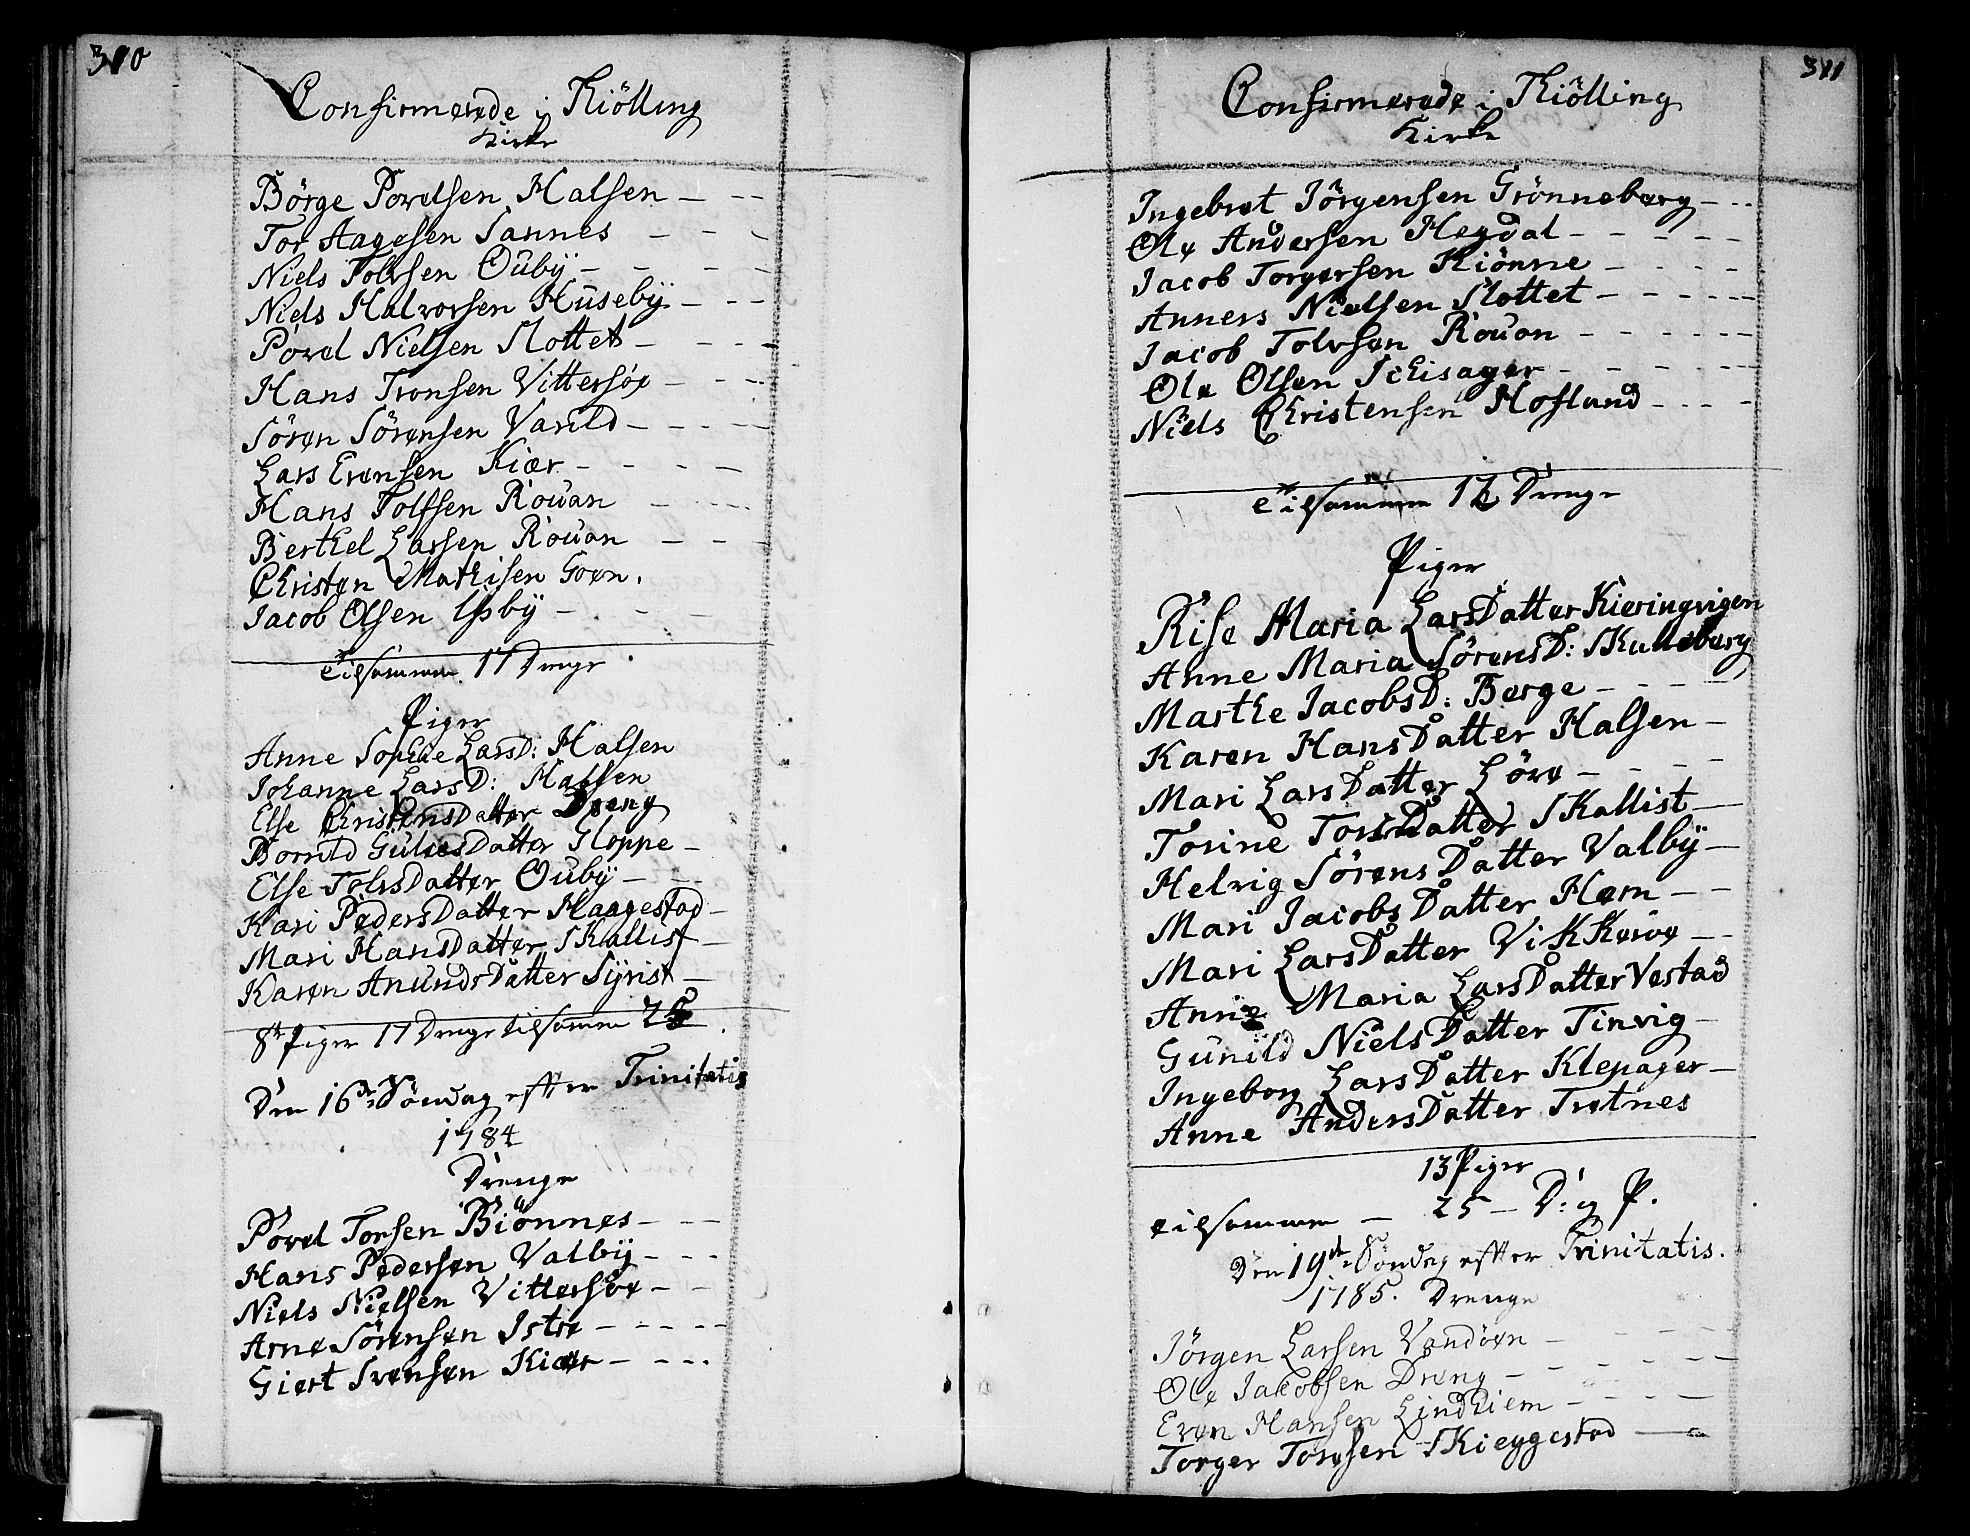 310
Confirmerede i Kiölling
Kirke
Börge Povelsen Halsen
Tor Aagesen Sannes
Niels Tolvsen Ouby
Niels Halvorsen Huseby
Povel Nielsen Slottet
Hans Tronsen Vittersöe
Sören Sörensen Varild
Lars Evensen Kiær
Hans Tolfsen Rouan
Berthel Larsen Rouan
Christen Mathisen Goen.
Jacob Olsen
tilsammen 17 Drenge
Piger
Anne Sophie LarsD: Halsen
Johanne LarsD: Halsen
Else ChristensDatter Dreng
GuliesDatter Kloppe
Else TolvsDatter Ouby
Kari PedersDatter Haagestad
Mari HansDatter Skallist
Karen AnundsDatter Syrist
8te Piger 17 Drenge tilsamen 25
Den 16de Söndag efter Trinitatis
1784
Drenge
Povel Torsen Biönnes
Hans Pedersen Valby
Niels Nielsen Vittersöe
Arne Sörensen Istre
Giert Svensen Kiær
311
Confirmerede i Kiölling
Kirke
Ingebret Jörgensen Grönneberg
Ole Andersen Hegdal
Jacob Torgersen Kiönne
Anners Nielsen Slottet
Jacob Tolvsen Rouon
Ole Olsen Schisager
Niels Christensen Hofland
tilsammen 12 Drenge
Piger
Rise Maria LarsDatter Kieringvigen
Anne Maria SörensD: Skalleberg
Marthe JacobsD: Berge
Karen HansDatter Halsen
Mari LarsDatter Löve
Torine TorsDatter Skallist
Helvig SörensDatter Valby
Mari JacobsDatter Hem
Mari LarsDatter Vikkeröe
Anne Maria LarsDatter Vestad
Gunild NielsDatter Tinvig
Ingeborg LarsDatter Klepager
Anne AndersDatter Trotnes
13 Piger
tilsammen – 25 – D: og P.
Den 19de Söndag efter Trinitatis.
1785. Drenge
Jörgen Larsen Vandöen
Ole Jacobsen Dreng
Even Hansen Lindhiem
Torger Torgsen Skieggestad